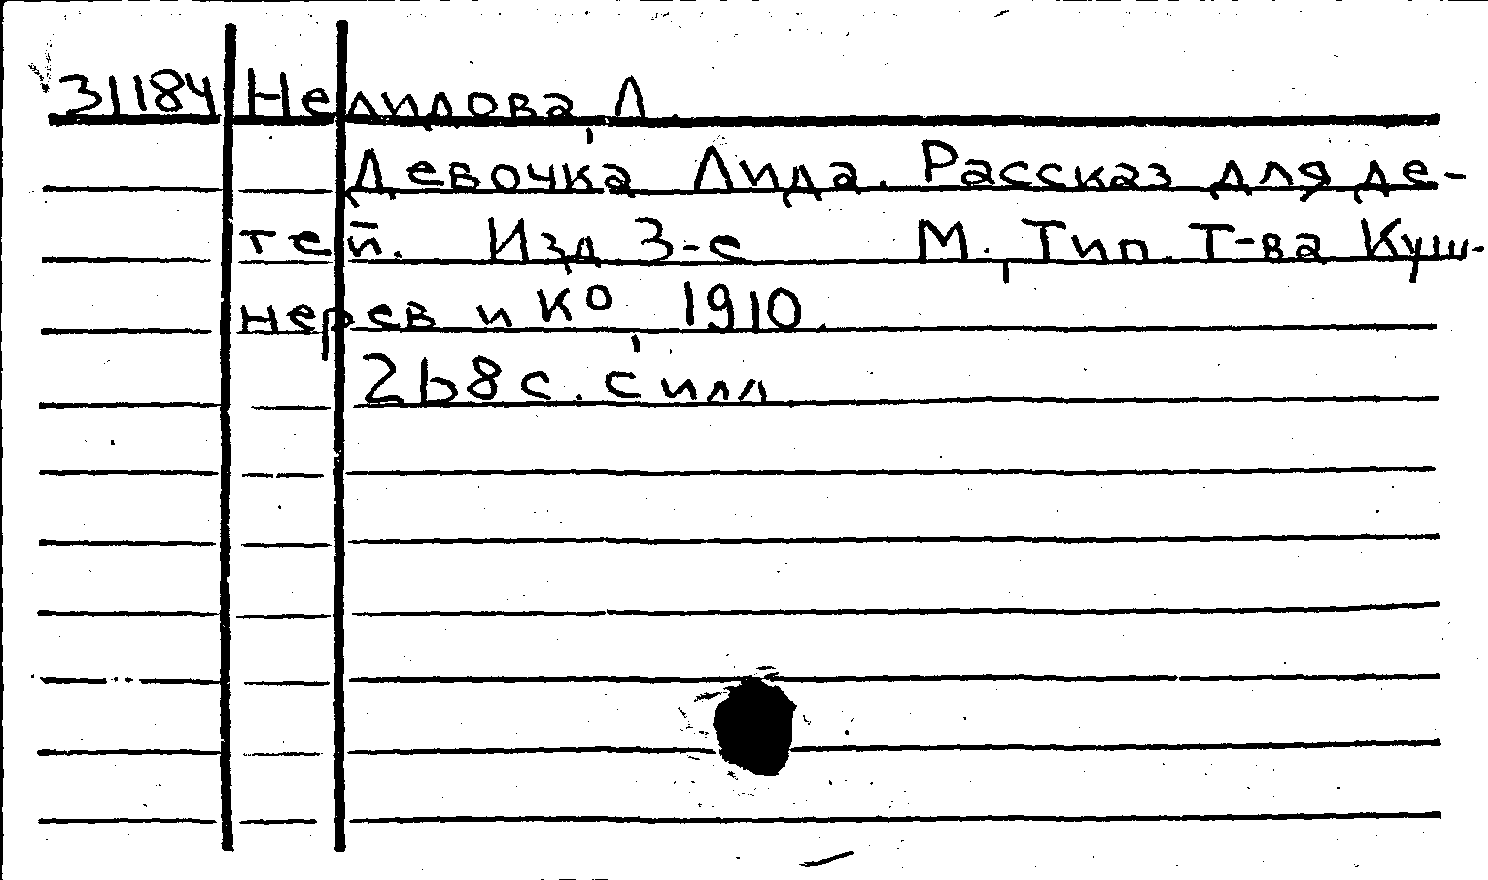 31184 Нелидова, Л.
Девочка Лида. Рассказ для де-
тей. Изд. 3-е М., Тип. Т-ва Куш-
нерев и К⁰, 1910.
268 с. с илл.